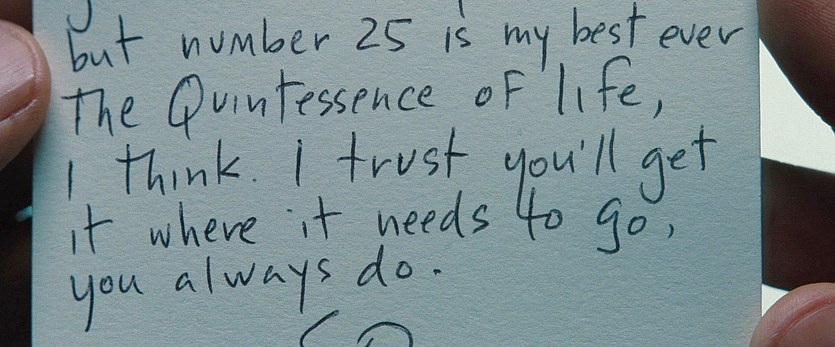 but number 25 is my best ever
The Quintessence of life,
I think. I trust you'll get
it where it needs to go,
you always do.